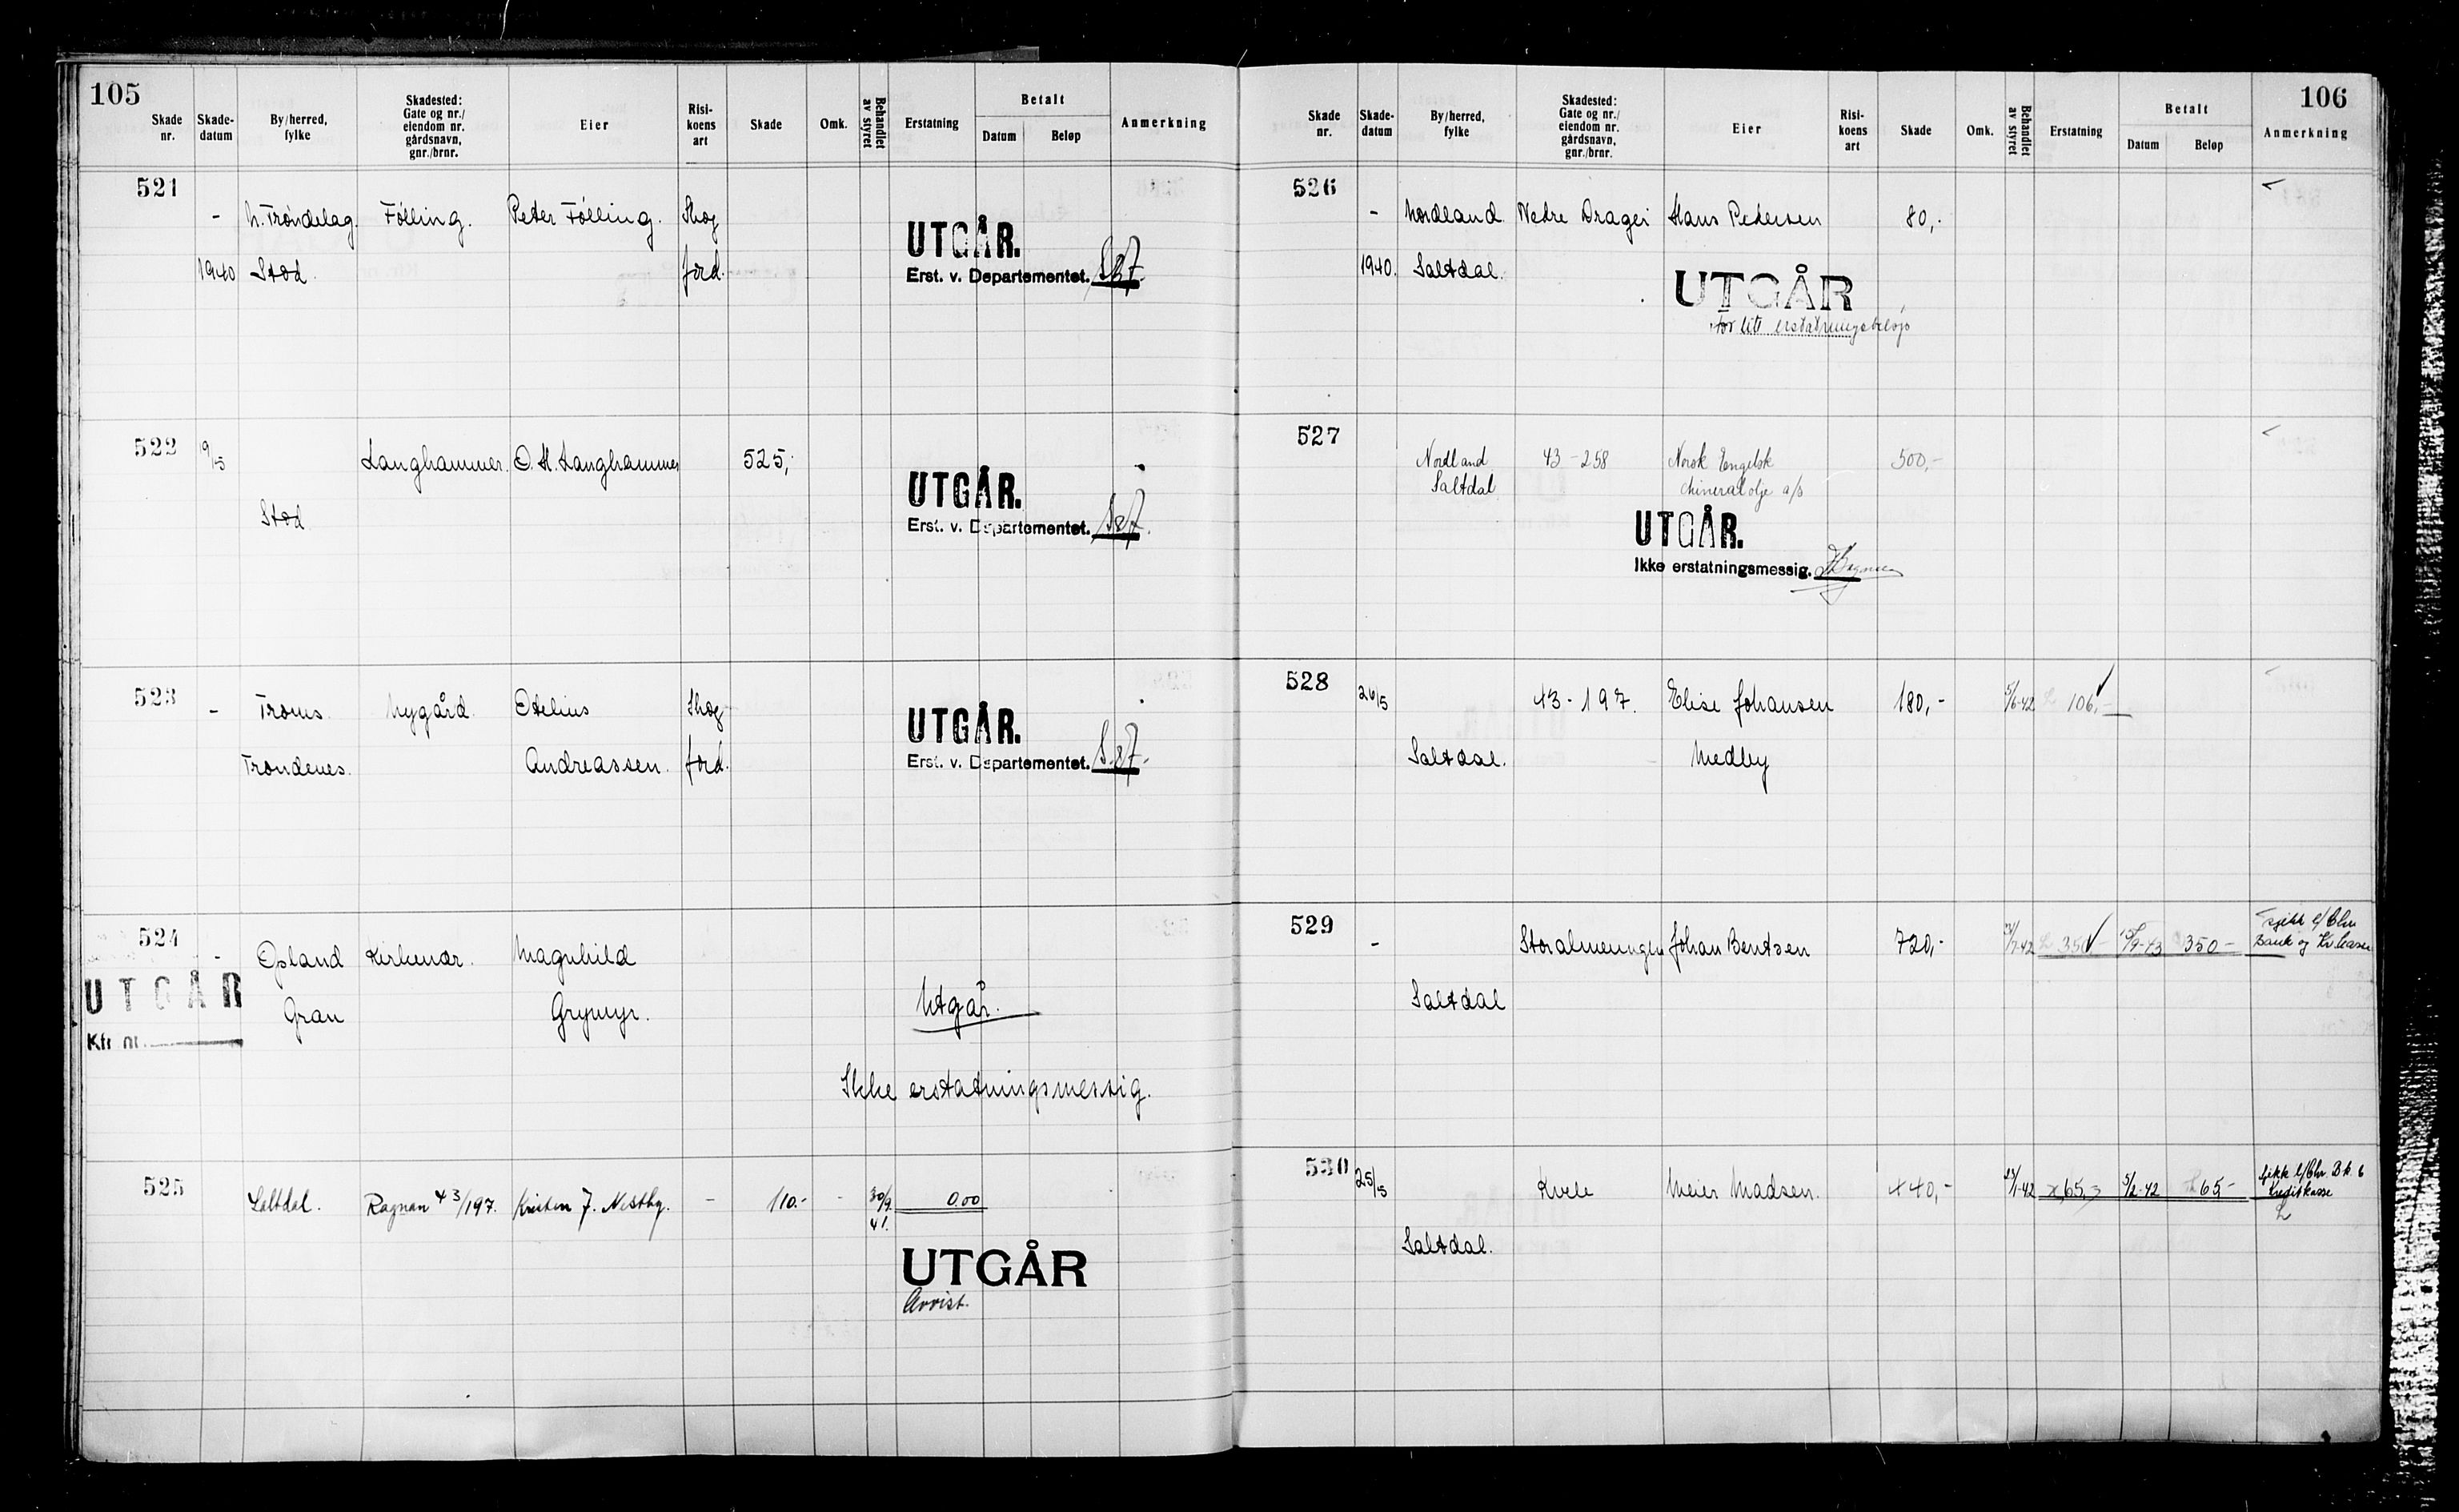 105
Skade nr. Skade-datum By/herred, fylke Skadested: Gate og nr./ eiendom nr. gårdsnavn, gnr./brnr. Eier Risi-koens art Skade Omk. Behandlet av styret Erstatning Betalt Datum Beløp Anmerkning
521
- N. Trøndelag. Følling. Peter Følling. Skog
1940 Stod. jord.
UTGÅR.
Erst. v. Departementet.
522 19/5 Langhammer. O. H. Langhammer 525,-
Stod
UTGÅR.
Erst. v. Departementet.
523 - Troms Nygård Otelius Skog
Trondenes. Andreassen. jord.
UTGÅR.
Erst. v. Departementet.
524 - Opland Kirkenær. Magnhild
UTGÅR
Gran Grymyr. Utgår.
Kfr. nr.
Ikke erstatningsmessig.
525 Saltdal. Rognan 43/197. Kristen J. Nestby. - 110.- - 30/9 41. 0.00
UTGÅR
Avvist.
106
Skade nr. Skade-datum By/herred, fylke Skadested: Gate og nr./ eiendom nr. gårdsnavn, gnr./brnr. Eier Risi-koens art Skade Omk. Behandlet av styret Erstatning Betalt Datum Beløp Anmerkning
526
- Nordland Nedre Dragei Hans Pedersen 80,-
1940. Saltdal.
UTGÅR
for lite erstatningsbeløp
527
Nordland 43-258 Norsk Engelsk 500,-
Saltdal Mineralolje a/s
UTGÅR.
Ikke erstatningsmessig.
528 26/5 43-197. Elise Johansen 180,- 5/6-42 106,-
Saltdal. Medby
529 - Storalmenningen Johan Bentsen 720,- 350- /9-43 350- sjekk l/Chr Bank og Kr.kasse
Saltdal
530 25/5 Kvele Meier Madsen. 440,- 23/1-42 65,- 5/2-42 65,- sjekk l/Chr. Bk &
Kreditkasse
Saltdal.